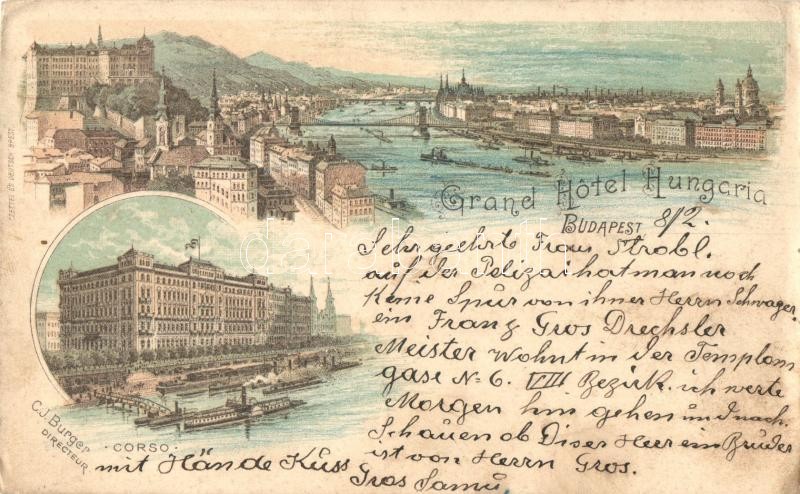 Grand Hôtel Hungaria
BUDAPEST, 8/2.
Sehr geehrte Frau Strobl.
auf der Polizai hat man noch
keine Spur von ihner Herrn Schwager,
ein Franz Gros Drechsler
Meister wohnt in der Templom
gase No 6. VIII Bezirk. ich werte
Morgen hin gehen und nach.
Schauen ob Diser Herr ein Bruder
ist von Herrn Gros.
mit Hände Küss
Gros Samu
C.J. Burger
DIRECTEUR
· CORSO ·